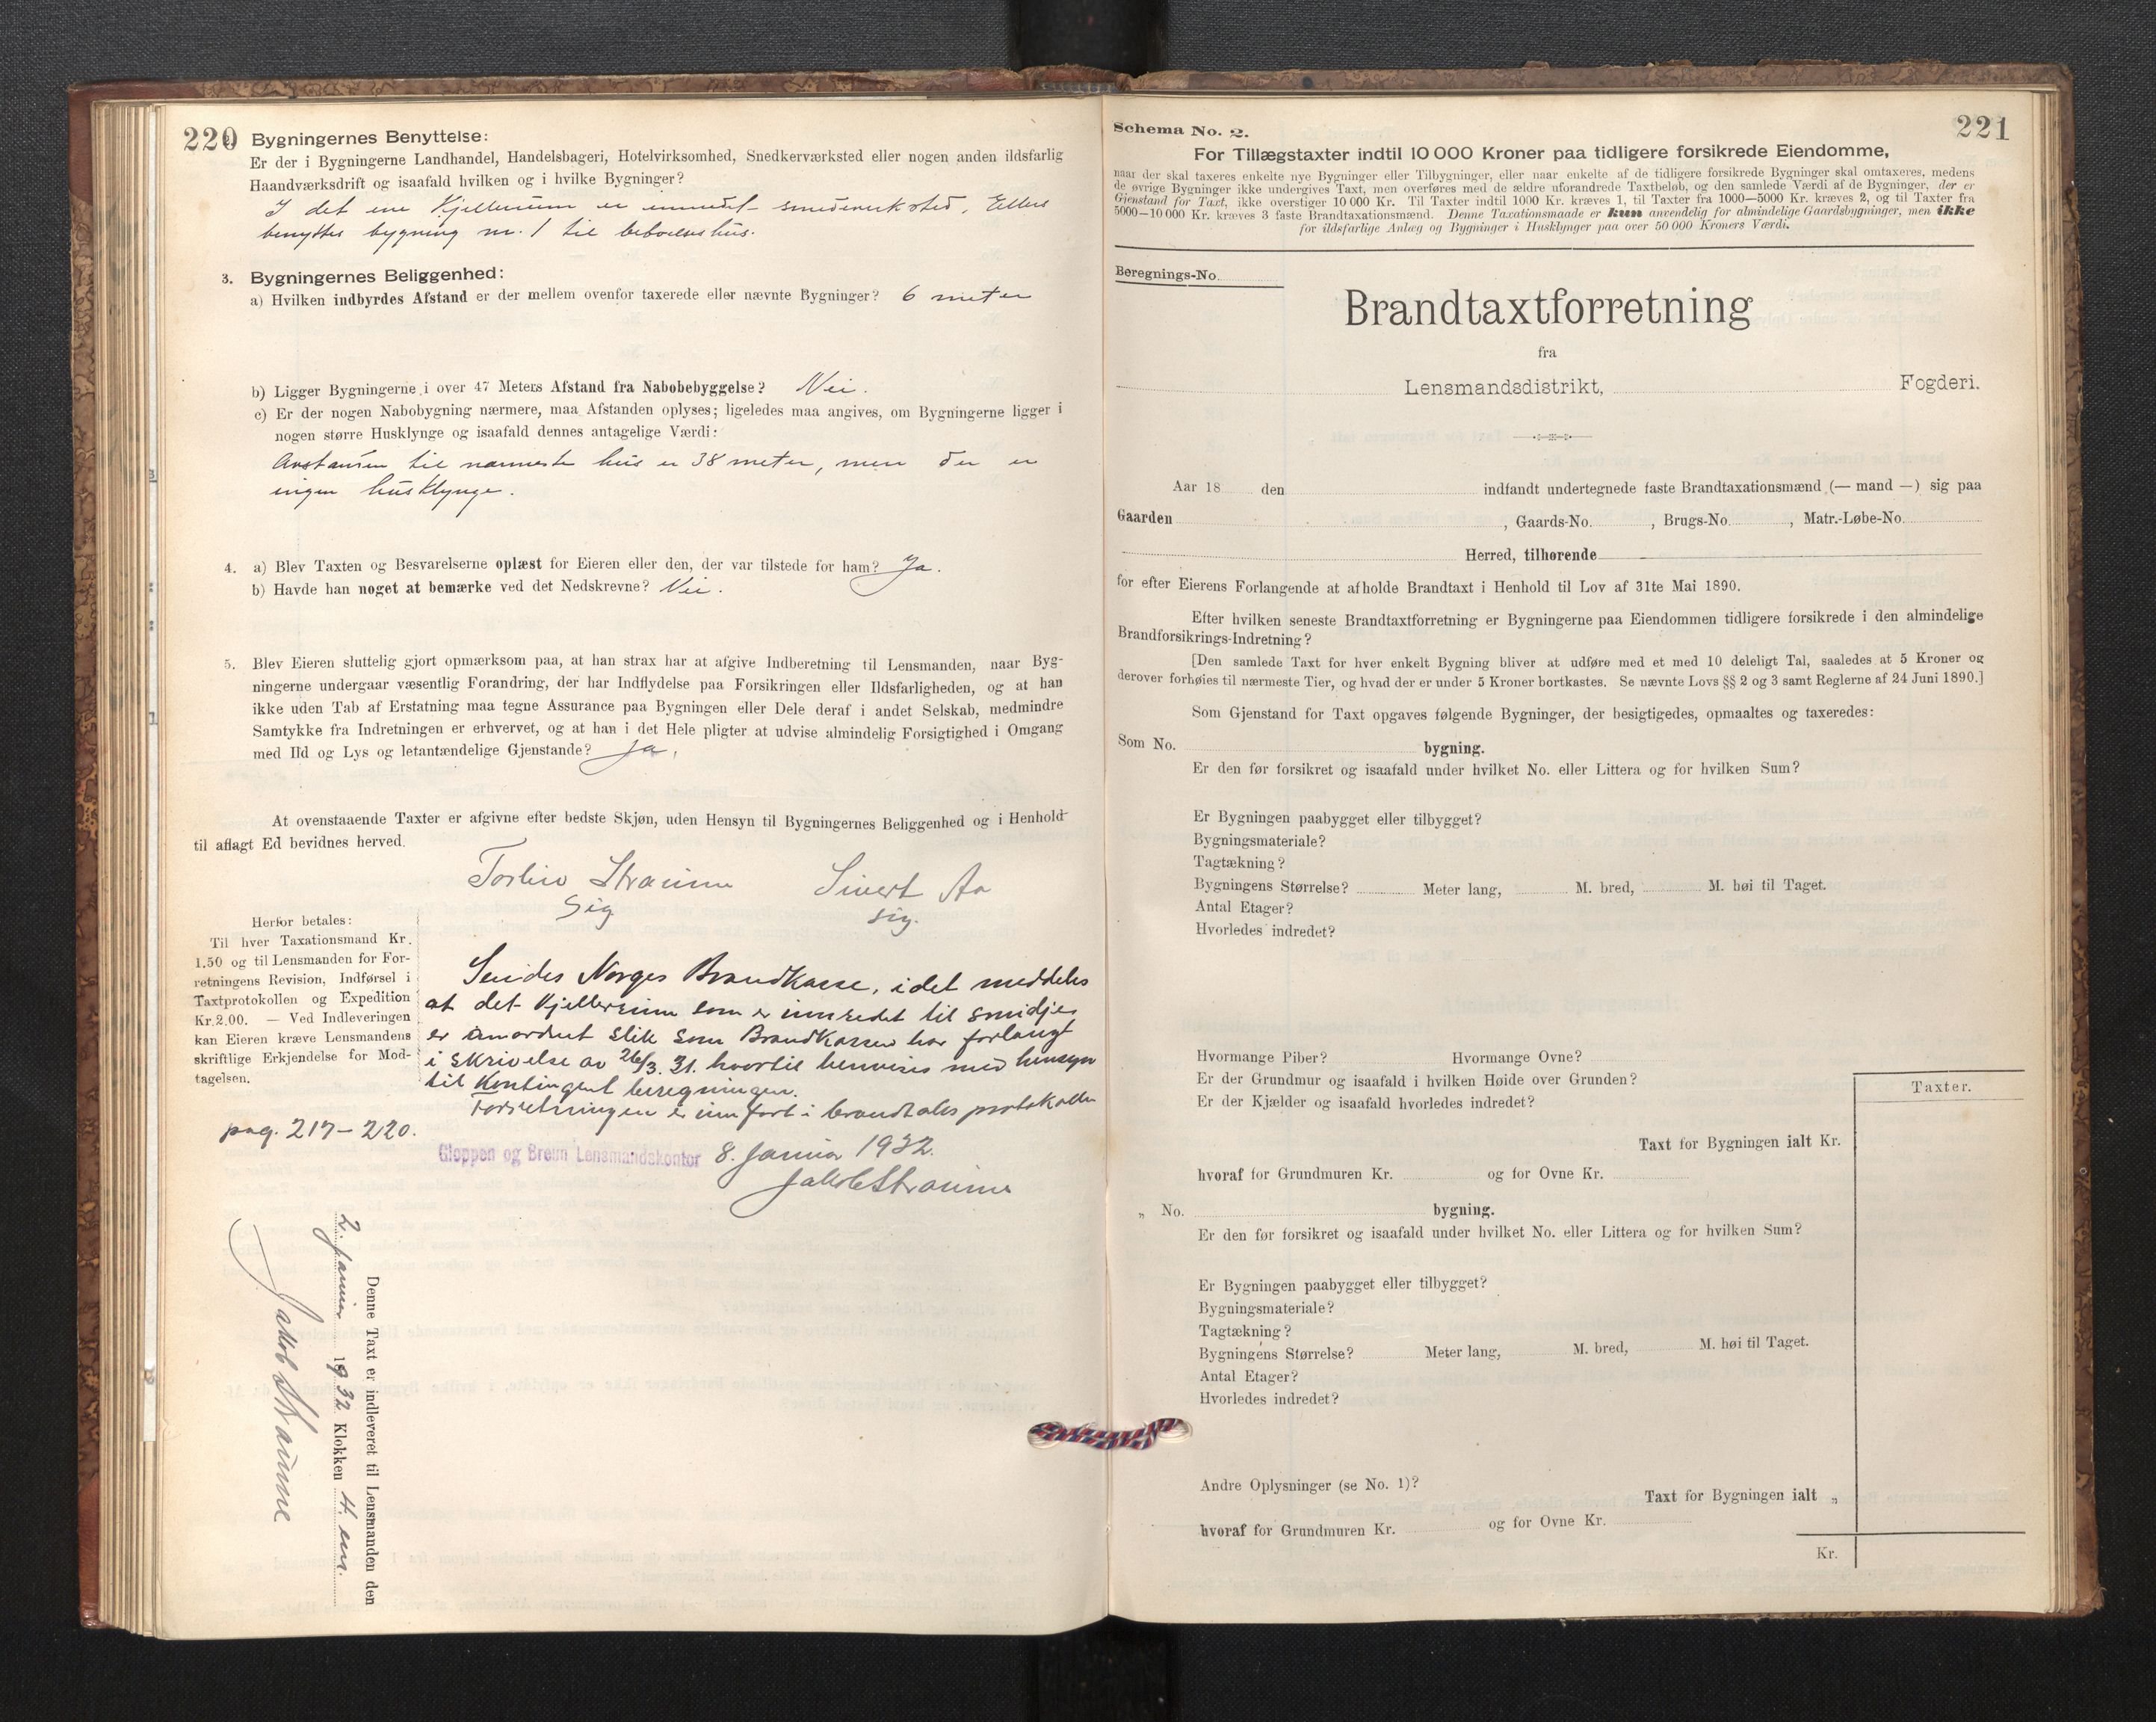 220
Bygningernes Benyttelse:
Er der i Bygningerne Landhandel, Handelsbageri, Hotelvirksomhed, Snedkerværksted eller nogen anden ildsfarlig
Haandværksdrift og isaafald hvilken og i hvilke Bygninger?
I det ene Kjellerrum er innredet smedverksted. Ellers
benyttes bygning nr. 1 til beboelseshus.
3. Bygningernes Beliggenhed:
a) Hvilken indbyrdes Afstand er der mellem ovenfor taxerede eller nævnte Bygninger? 6 meter
b) Ligger Bygningerne i over 47 Meters Afstand fra Nabobebyggelse? Nei.
c) Er der nogen Nabobygning nærmere, maa Afstanden oplyses; ligeledes maa angives, om Bygningerne ligger i
nogen større Husklynge og isaafald dennes antagelige Værdi:
Avstanden til nærmeste hus er 38 meter, men der er
ingen husklynge.
4. a) Blev Taxten og Besvarelserne oplæst for Eieren eller den, der var tilstede for ham? Ja.
b) Havde han noget at bemærke ved det Nedskrevne? Nei.
5. Blev Eieren sluttelig gjort opmærksom paa, at han strax har at afgive Indberetning til Lensmanden, naar Byg-
ningerne undergaar væsentlig Forandring, der har Indflydelse paa Forsikringen eller Ildsfarligheden, og at han
ikke uden Tab af Erstatning maa tegne Assurance paa Bygningen eller Dele deraf i andet Selskab, medmindre
Samtykke fra Indretningen er erhvervet, og at han i det Hele pligter at udvise almindelig Forsigtighed i Omgang
med Ild og Lys og letantændelige Gjenstande? Ja.
At ovenstaaende Taxter er afgivne efter bedste Skjøn, uden Hensyn til Bygningernes Beliggenhed og i Henhold
til aflagt Ed bevidnes herved.
Straume Sivert Aa
Sig sig.
Herfor betales:
Til hver Taxationsmand Kr.
1.50 og til Lensmanden for For-
retningens Revision, Indførsel i
Taxtprotokollen og Expedition
Kr. 2.00. — Ved Indleveringen
kan Eieren kræve Lensmandens
skriftlige Erkjendelse for Mod-
tagelsen.
Sendes Norges Brandkasse, idet meddeles
at det Kjellerrum som er innredet til smidje,
er anordnet slik som Brandkassen har forlangt
i skrivelse av 26/3. 31. hvortil henvises med hensyn
til Kontingent beregningen.
Forretningen er innført i brandtakstprotokollen
pag. 217–220.
Gloppen og Breim Lensmandskontor 8. januar 1932.
Jakob Straume
Denne Taxt er indleveret til Lensmanden den
2. januar 1932 Klokken 4 em.
Jakob Straume
221
Schema No. 2.
For Tillægstaxter indtil 10 000 Kroner paa tidligere forsikrede Eiendomme,
naar der skal taxeres enkelte nye Bygninger eller Tilbygninger, eller naar enkelte af de tidligere forsikrede Bygninger skal omtaxeres, medens
de øvrige Bygninger ikke undergives Taxt, men overføres med de ældre uforandrede Taxtbeløb, og den samlede Værdi af de Bygninger, der er
Gjenstand for Taxt, ikke overstiger 10 000 Kr. Til Taxter indtil 1000 Kr. kræves 1, til Taxter fra 1000—5000 Kr. kræves 2, og til Taxter fra
5000—10 000 Kr. kræves 3 faste Brandtaxationsmænd. Denne Taxationsmaade er kun anvendelig for almindelige Gaardsbygninger, men ikke
for ildsfarlige Anlæg og Bygninger i Husklynger paa over 50 000 Kroners Værdi.
Beregnings-No.
Brandtaxtforretning
fra
Lensmandsdistrikt, Fogderi.
Aar 18 den indfandt undertegnede faste Brandtaxationsmænd (— mand —) sig paa
Gaarden , Gaards-No. , Brugs-No. , Matr.-Løbe-No.
Herred, tilhørende
for efter Eierens Forlangende at afholde Brandtaxt i Henhold til Lov af 31te Mai 1890.
Efter hvilken seneste Brandtaxtforretning er Bygningerne paa Eiendommen tidligere forsikrede i den almindelige
Brandforsikrings-Indretning?
[Den samlede Taxt for hver enkelt Bygning bliver at udføre med et med 10 deleligt Tal, saaledes at 5 Kroner og
derover forhøies til nærmeste Tier, og hvad der er under 5 Kroner bortkastes. Se nævnte Lovs §§ 2 og 3 samt Reglerne af 24 Juni 1890.]
Som Gjenstand for Taxt opgaves følgende Bygninger, der besigtigedes, opmaaltes og taxeredes:
Som No. bygning.
Er den før forsikret og isaafald under hvilket No. eller Littera og for hvilken Sum?
Er Bygningen paabygget eller tilbygget?
Bygningsmateriale?
Tagtækning?
Bygningens Størrelse? Meter lang, M. bred, M. høi til Taget.
Antal Etager?
Hvorledes indredet?
Hvormange Piber? Hvormange Ovne?
Er der Grundmur og isaafald i hvilken Høide over Grunden?
Er der Kjælder og isaafald hvorledes indredet?
Taxter.
Taxt for Bygningen ialt Kr.
hvoraf for Grundmuren Kr. og for Ovne Kr.
„ No. bygning.
Er den før forsikret og isaafald under hvilket No. eller Littera og for hvilken Sum?
Er Bygningen paabygget eller tilbygget?
Bygningsmateriale?
Tagtækning?
Bygningens Størrelse? Meter lang, M. bred, M. høi til Taget.
Antal Etager?
Hvorledes indredet?
Andre Oplysninger (se No. 1)?
Taxt for Bygningen ialt „
hvoraf for Grundmuren Kr. og for Ovne Kr.
Kr.